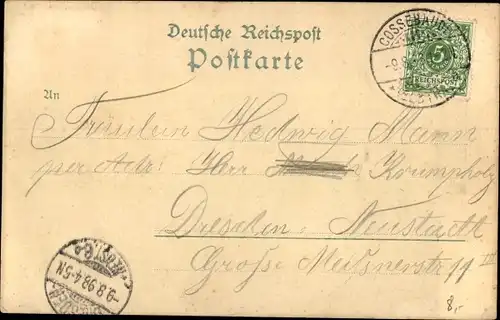 Deutsche Reichspost
Postkarte
COSSEBAUDE
5
REICHSPOST
An
Fräulein Hedwig Mann
per Adr: Herr Krumpholz
Dresden-Neustadt
Große Meißnerstr 11 III
9.8.98.4-5N
8,-